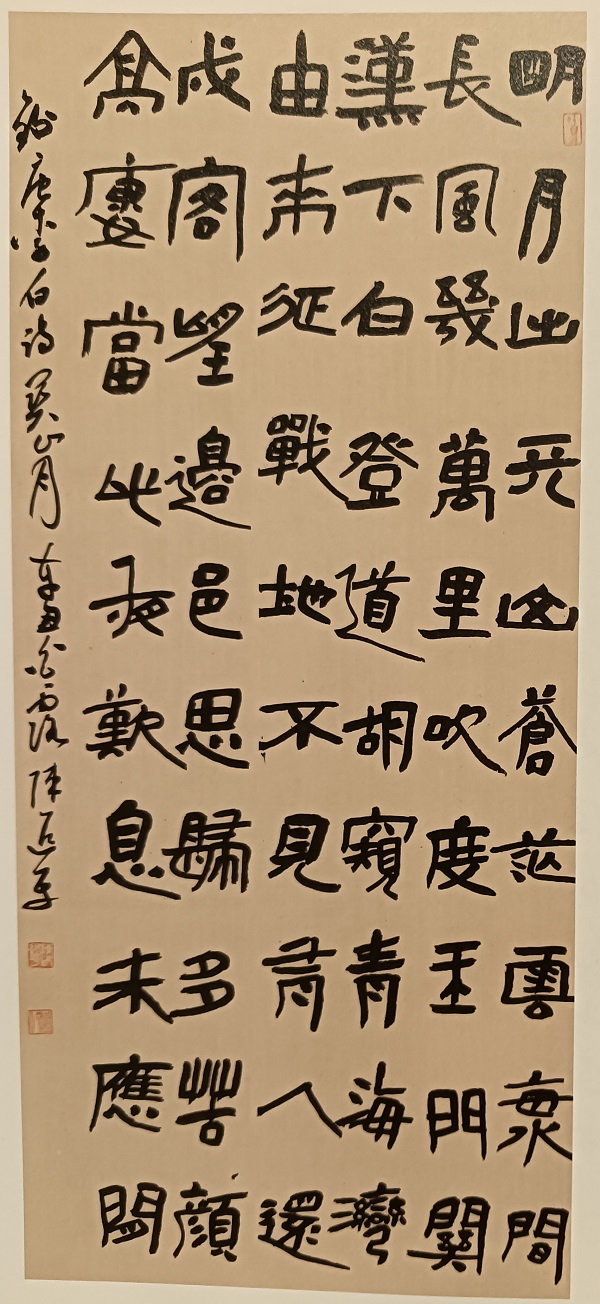 明月出天山蒼茫雲海間
長風幾萬里吹度玉門關
漢下白登道胡窺青海灣
由來征戰地不見有人還
戍客望邊邑思歸多苦顏
高樓當此夜歎息未應閑
錄唐李白詩關山月 白露 陳